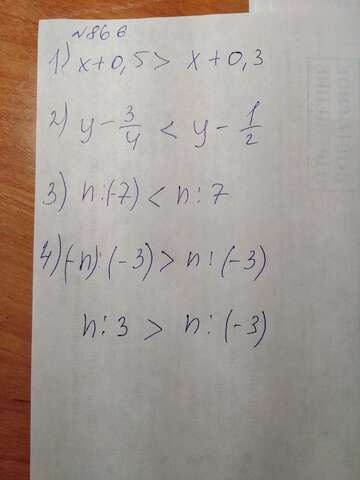 №866
1) x+0,5 > x+0,3
2) y - 3/4 < y - 1/2
3) n:(-7) < n:7
4) (-n):(-3) > n:(-3)
n:3 > n:(-3)